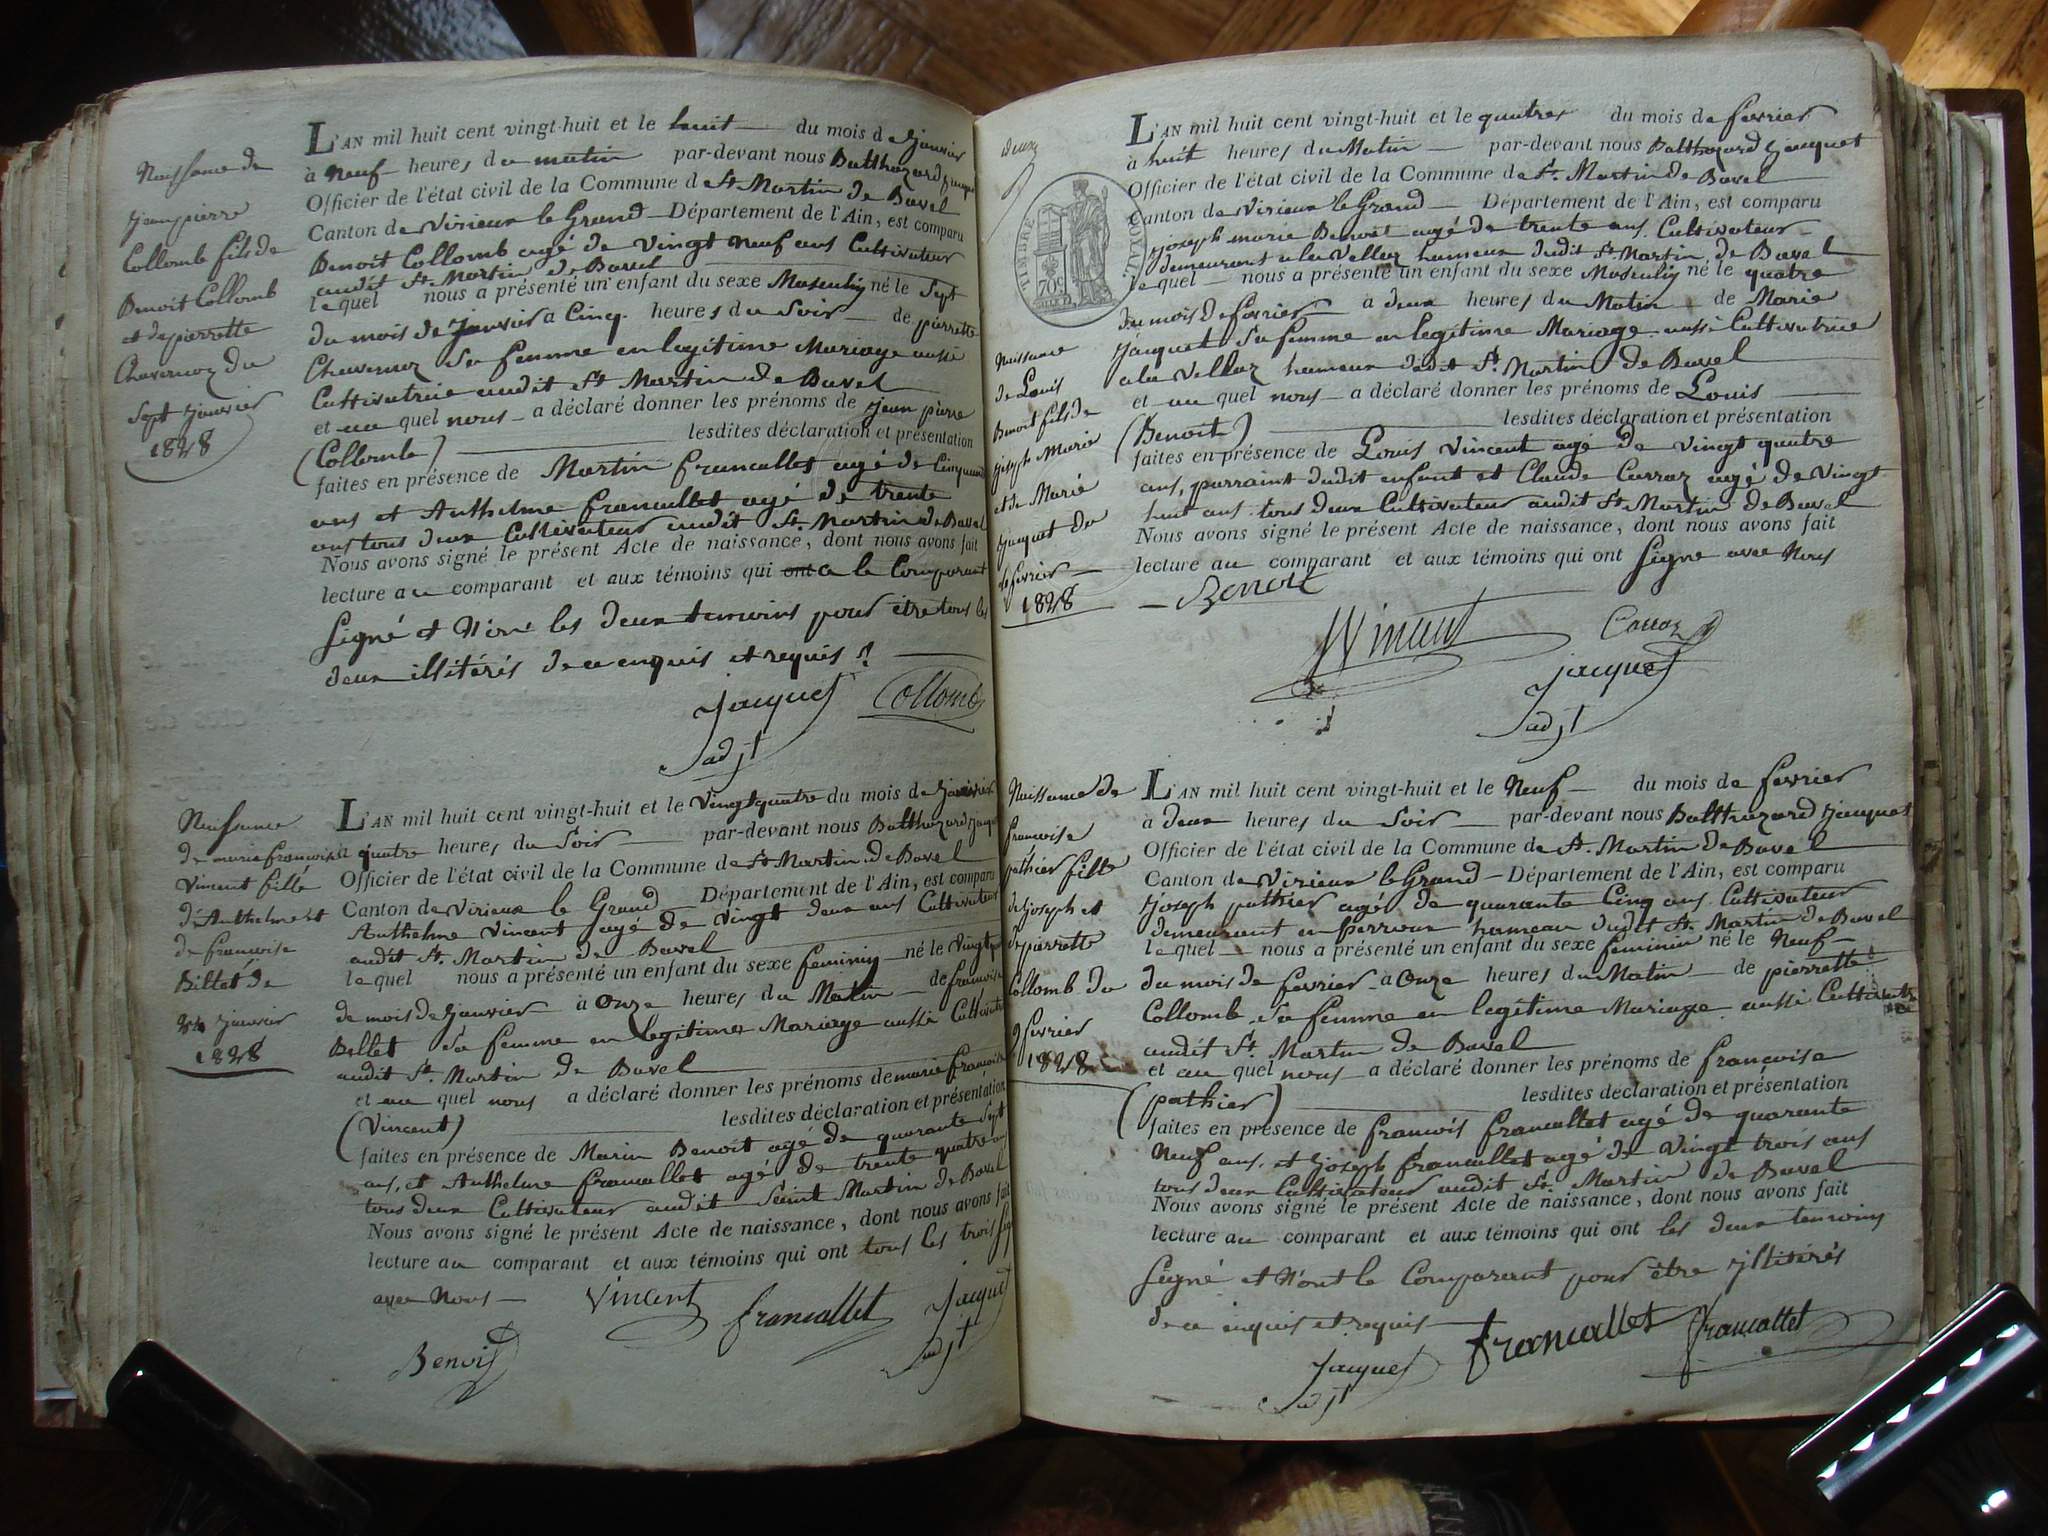 Naissance de
jean pierre
Collomb fils de
Benoit Collomb
et de pierrette
Chavernoz du
Sept janvier
1828
L'AN mil huit cent vingt-huit et le huit du mois de janvier
à Neuf heures du matin par-devant nous Balthazard jacquet
Officier de l'état civil de la Commune de St. Martin de Bavel
Canton de Virieux le Grand Département de l'Ain, est comparu
Benoit Collomb agé de Vingt Neuf ans Cultivateur
audit St. Martin de Bavel
lequel nous a présenté un enfant du sexe Masculin né le Sept
du mois de Janvier à Cinq heures du Soir de pierrette
Chavernoz Sa femme en legitime Mariage aussi
Cultivatrice audit St Martin de Bavel
et au quel nous a déclaré donner les prénoms de jean pierre
(Collomb) lesdites déclaration et présentation
faites en présence de Martin francallet agé de Cinquante
ans et Anthelme francallet agé de trente
ans tous deux Cultivateur audit St. Martin de Bavel
Nous avons signé le présent Acte de naissance, dont nous avons fait
lecture au comparant et aux témoins qui ont a le Comparant
Signé et Non les deux temoins pour être tous les
deux illitérés de ce enquis et requis
jacquet Collomb
adjt
Naissance
de marie françoise
Vincent fille
d'Anthelme et
de françoise
Billet de
24 janvier
1828
L'AN mil huit cent vingt-huit et le Vingtquatre du mois de janvier
à quatre heures du Soir par-devant nous Balthazard jacquet
Officier de l'état civil de la Commune de St Martin de Bavel
Canton de Virieux le Grand Département de l'Ain, est comparu
Anthelme Vincent agé de Vingt deux ans Cultivateur
audit St. Martin de Bavel
lequel nous a présenté un enfant du sexe feminin né le Vingtquatre
de mois de Janvier à Onze heures du Matin de francoise
Billet Sa femme en legitime Mariage aussi Cultivatrice
audit St. Martin de Bavel
et au quel nous a déclaré donner les prénoms de marie francoise
(Vincent) lesdites déclaration et présentation
faites en présence de Marin Benoit agé de quarante Sept
ans, et Anthelme francallet agé de trente quatre ans
tous deux Cultivateur audit Saint Martin de Bavel
Nous avons signé le présent Acte de naissance, dont nous avons fait
lecture au comparant et aux témoins qui ont tous les trois signé
avec Nous Vincent francallet jacquet
Benoit adjt
deux
TIMBRE ROYAL
Naissance
de Louis
Benoit fils de
joseph Marie
et de Marie
jacquet du
4 fevrier
1828
L'AN mil huit cent vingt-huit et le quatres du mois de fevrier
à huit heures du Matin par-devant nous Balthazard jacquet
Officier de l'état civil de la Commune de St. Martin de Bavel
Canton de Virieux le Grand Département de l'Ain, est comparu
joseph marie Benoit agé de trente ans Cultivateur
demeurant a la Vellaz hameau dudit St Martin de Bavel
lequel nous a présenté un enfant du sexe Masculin né le quatre
du mois de fevrier à deux heures du Matin de Marie
jacquet Sa femme en legitime Mariage aussi Cultivatrice
a la Vellaz hameau dedit St. Martin de Bavel
et au quel nous a déclaré donner les prénoms de Louis
(Benoit) lesdites déclaration et présentation
faites en présence de Louis Vincent agé de Vingt quatre
ans, parraint dudit enfant et Claude Carraz agé de Vingt
huit ans tous deux Cultivateur audit St Martin de Bavel
Nous avons signé le présent Acte de naissance, dont nous avons fait
lecture au comparant et aux témoins qui ont Signé avec Nous
Benoit
Vincent Carraz
jacquet
adjt
Naissance de
françoise
pathier fille
de joseph et
de pierrette
Collomb du
9 fevrier
1828
L'AN mil huit cent vingt-huit et le Neuf du mois de fevrier
à deux heures du Soir par-devant nous Balthazard jacquet
Officier de l'état civil de la Commune de St. Martin de Bavel
Canton de Virieux le Grand Département de l'Ain, est comparu
joseph pathier agé de quarante Cinq ans Cultivateur
demeurant en hameau dudit St. Martin de Bavel
lequel nous a présenté un enfant du sexe feminin né le Neuf
du mois de fevrier à Onze heures du Matin de pierrette
Collomb Sa femme en legitime Mariage aussi Cultivatrice
audit St. Martin de Bavel
et au quel nous a déclaré donner les prénoms de francoise
(pathier) lesdites déclaration et présentation
faites en présence de francois francallet agé de quarante
Neuf ans, et joseph francallet agé de Vingt trois ans
tous deux Cultivateur audit St. Martin de Bavel
Nous avons signé le présent Acte de naissance, dont nous avons fait
lecture au comparant et aux témoins qui ont les deux temoins
Signé et Nont le Comparent pour être illitérés
de ce enquis et requis francallet francallet
jacquet
adjt